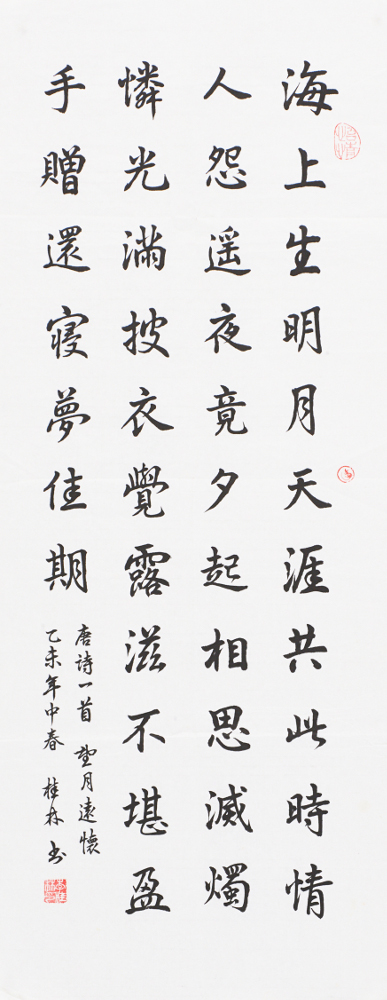 海上生明月天涯共此時情
人怨遥夜竟夕起相思滅燭
憐光滿披衣覺露滋不堪盈
手贈還寢夢佳期
唐诗一首 望月遠懷
乙未年中春 桂林书